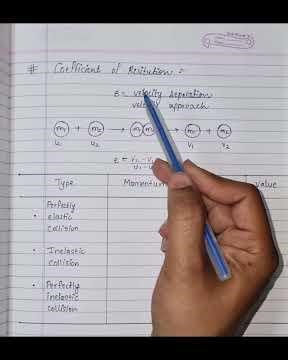 # Coefficient of Restitution :-
e = velocity separation
velocity approach
m₁ + m₂ → m₁ m₂ → m₁ + m₂
u₁ u₂ v₁ v₂
e = v₂ - v₁
u₁ - u₂
Type Momentum Value
• Perfectly elastic collision
• Inelastic collision
• Perfectly inelastic collision